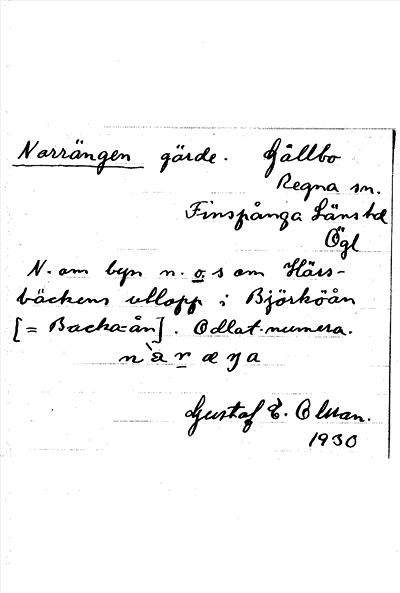 Norrängen gärde. Gällbo
Regna sn.
Finspånga Länshd
Ögl
N. om byn n. o. s om Hårs-
bäckens utlopp i Björköån
[= Backa-ån]. Odlat numera.
Gustaf E. Olsson.
1930